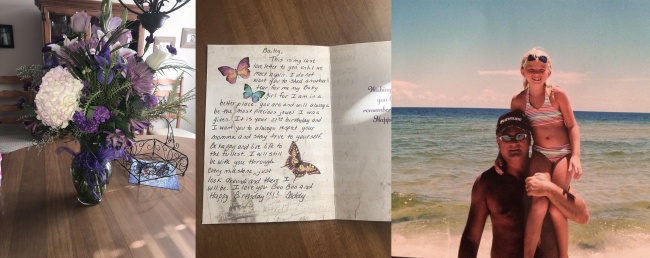 Bailey,
This is my last
love letter to you until we
meet again. I do not
want you to shed another
tear for me my Baby
girl for I am in a
better place. You are and will always
be the most precious jewel I was
given. It is your 21st birthday and
I want you to always respect your
momma and stay true to yourself.
Be happy and live life to
the fullest. I will still
be with you through
every milestone, just
look around and there I
will be. I love you Boo Boo and
Happy Birthday!!!! Daddy
Wishing
you
remembe
Happ